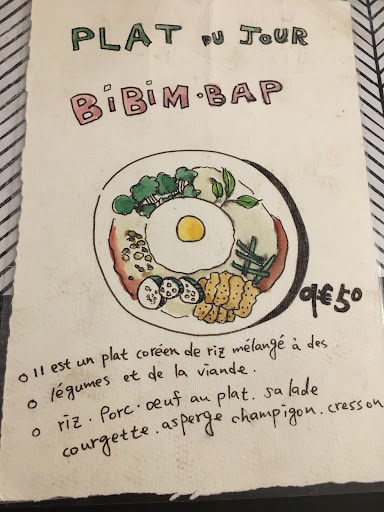 PLAT DU JOUR
BiBiM·BAP
9€50
Il est un plat coréen de riz mélangé à des
légumes et de la viande.
riz. Porc. œuf au plat. salade
courgette. asperge champigon. cresson